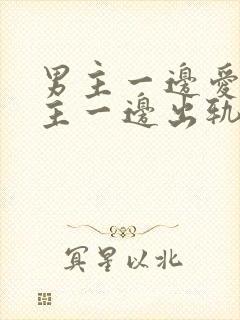 男主一邊愛
主一邊出軌
冥星以北